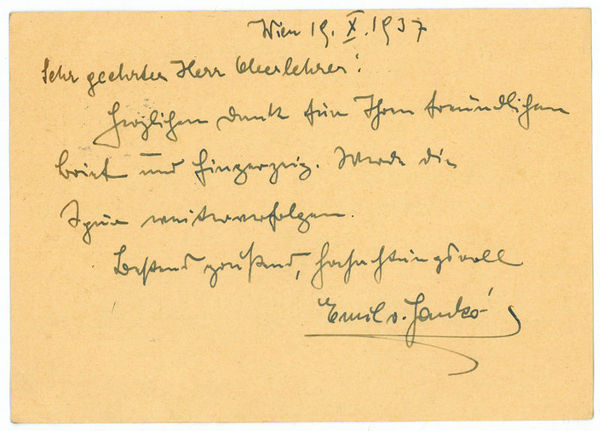 Wien 19. X. 1937
Sehr geehrter Herr Oberlehrer!
Herzlichen Dank für Ihren freundlichen
Brief und Fingerzeig. Werde die
Spur weiterverfolgen.
Bestens grüßend, hochachtungsvoll
Emil v. Jankó